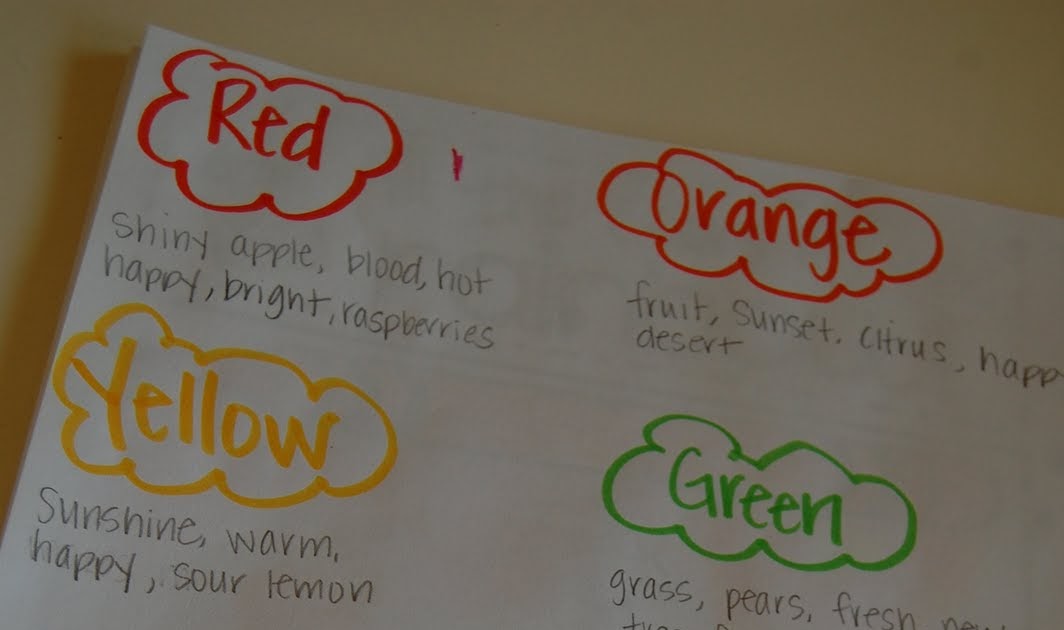 Red
Shiny apple, blood, hot
happy, bright, raspberries
Orange
fruit, sunset. citrus, happy
desert
Yellow
Sunshine, warm,
happy, sour lemon
Green
grass, pears, fresh,